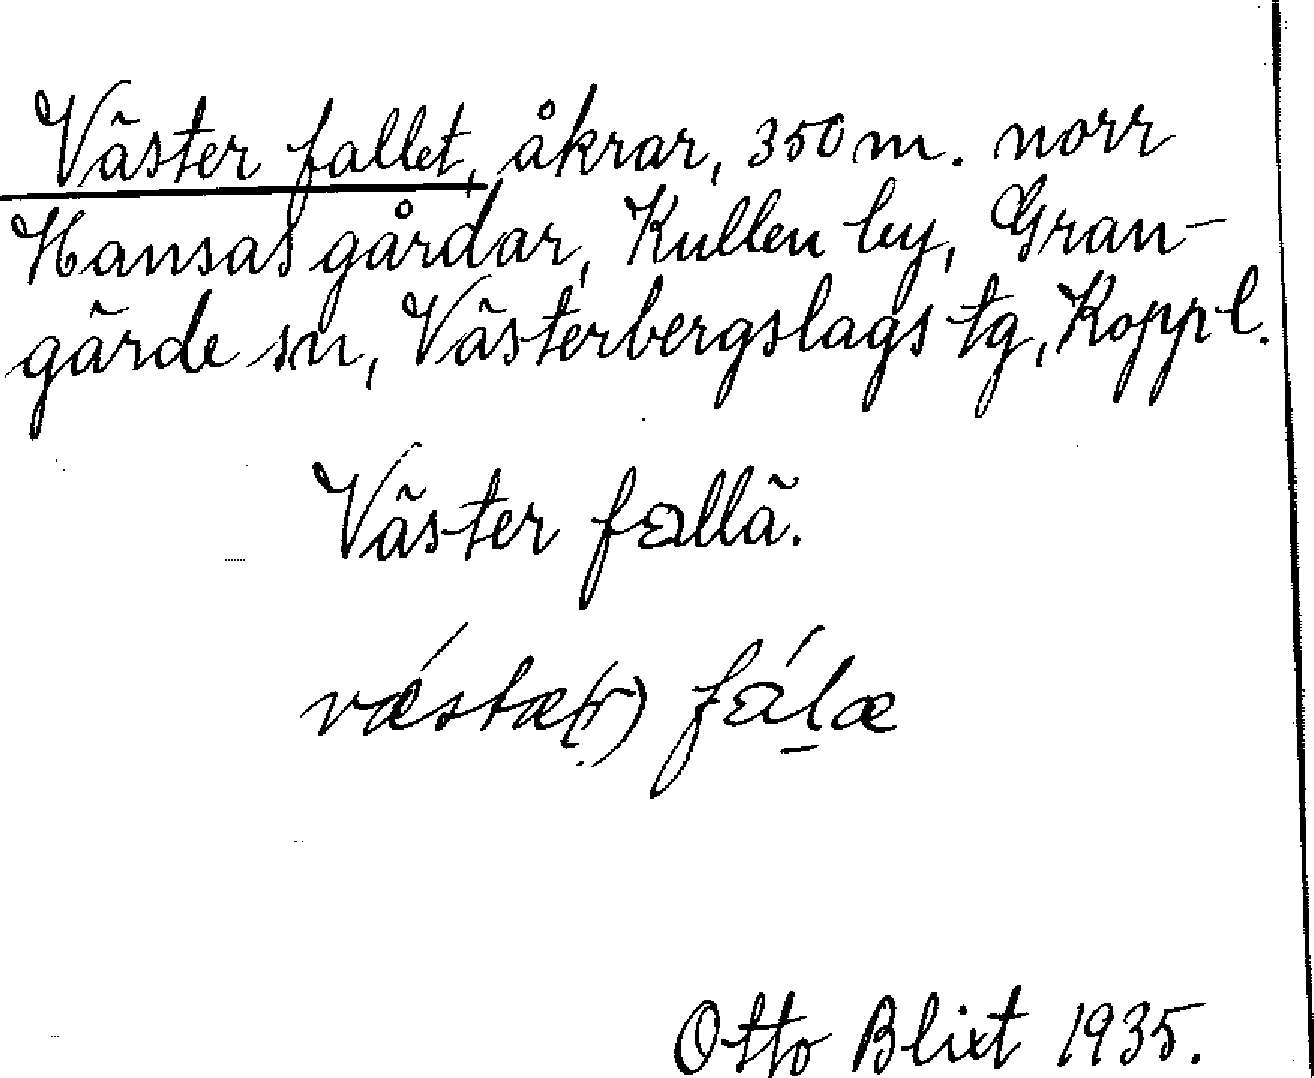 Väster fallet, åkrar, 350 m. norr
Hansas gårdar, Kullen by, Gran-
gärde sn, Västerbergslags tg, Koppl.
Väster fallä.
vǽstæ(r) fáḻæ
Otto Blixt 1935.